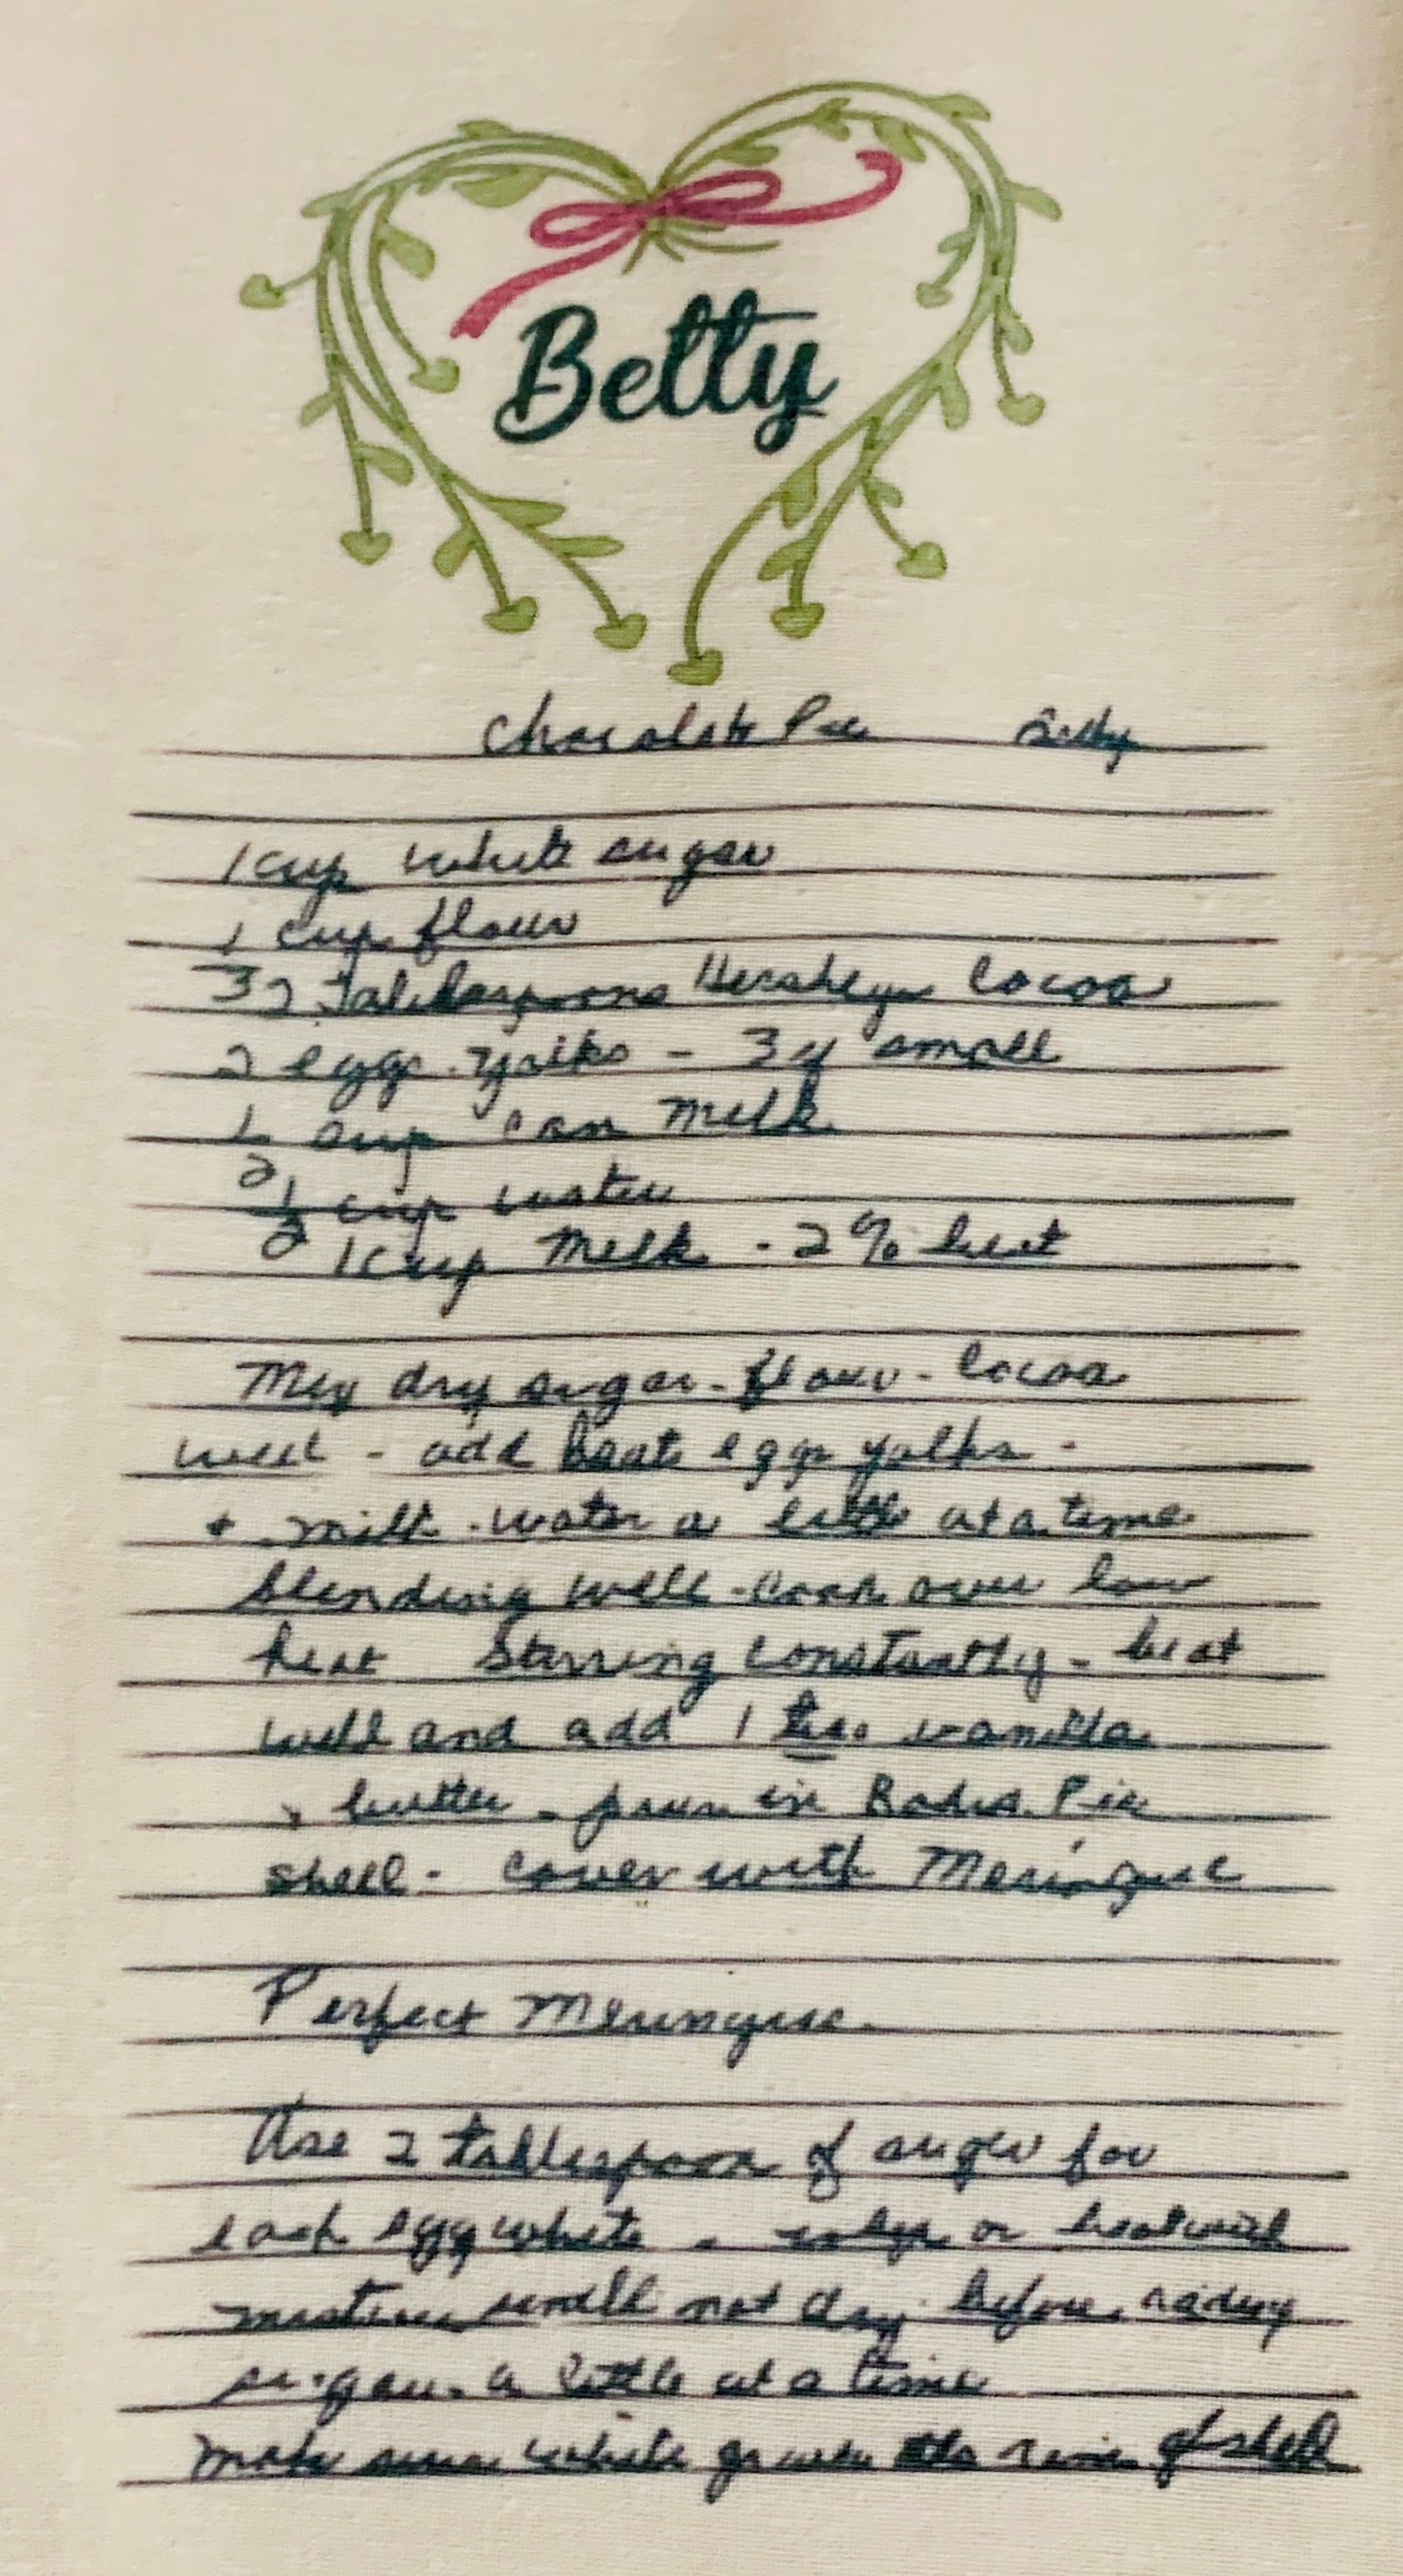 Betty
Chocolate Pie Betty
1 cup white sugar
1 cup flour
3 Tablespoons Hersheys Cocoa
2 eggs yolks - 3 if small
1/2 cup can milk
1/2 cup water
1 cup Milk - 2% best
Mix dry sugar - flour - Cocoa
well - add beate eggs yolks -
+ milk - water a little at a time
blending well - cook over low
heat Stirring constantly - beat
well and add 1 vanilla
+ butter - pour in Pie
shell - cover with Meringue
Perfect Meringue
Use 2 tablespoon of sugar for
each egg white - or beat until
mixture not dry before adding
sugar a little at a time
make sure white go over rim of shell